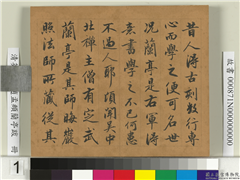 昔人得古刻數行專
心而學之便可名世
況蘭亭是右軍得
意書學之不已何患
不過人耶頃聞吳中
北禪主僧有定武
蘭亭是其師晦巖
照法師所藏從其
故書000871N000000000
1